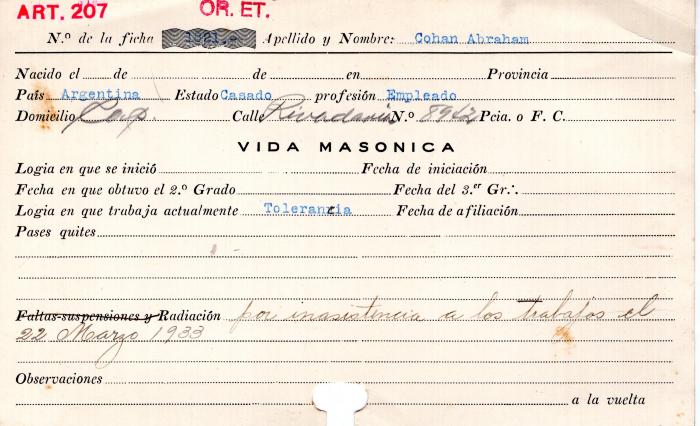 ART. 207 OR. ET.
N.º de la ficha Apellido y Nombre: Cohan Abraham
Nacido el de de en Provincia
País Argentina Estado Casado profesión Empleado
Domicilio Cap. Calle Rivadavia N.º 8942 Pcia. o F. C.
VIDA MASONICA
Logia en que se inició Fecha de iniciación
Fecha en que obtuvo el 2.º Grado Fecha del 3.er Gr∴
Logia en que trabaja actualmente Tolerancia Fecha de afiliación
Pases quites
Faltas-suspensiones y Radiación por inasistencia a los trabajos el
22 Marzo 1933
Observaciones
a la vuelta